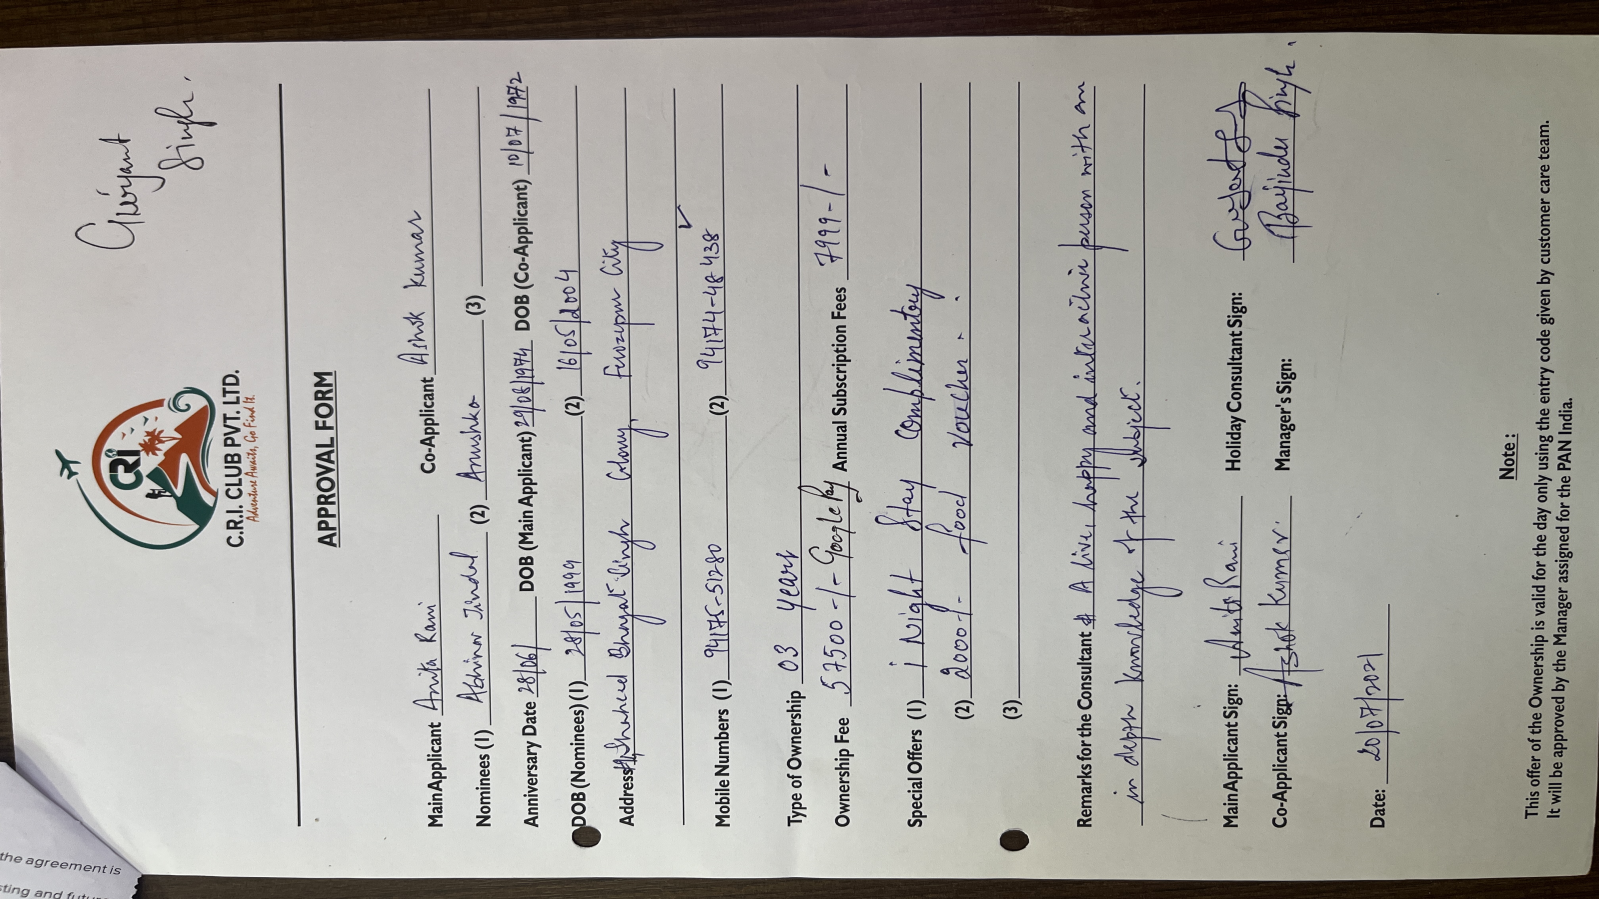 Guryant
Singh.
CRI
C.R.I. CLUB PVT. LTD.
Adventure Awaits, Go Find It.
APPROVAL FORM
Main Applicant Anita Rani Co-Applicant Ashok Kumar
Nominees (1) Abhinav Jindal (2) Anushka (3)
Anniversary Date 28/06/ DOB (Main Applicant) 29/08/1974 DOB (Co-Applicant) 10/07/1972
DOB (Nominees) (1) 28/05/1999 (2) 16/05/2004
Address Shaheed Bhagat Singh Colony, Ferozepur City
Mobile Numbers (1) 94175-51280 (2) 94174-48438 ✓
Type of Ownership 03 Years
Ownership Fee 57500-/- Google Pay Annual Subscription Fees 7999-/-
Special Offers (1) 1 Night Stay Complimentory
(2) 2000/- food voucher.
(3)
Remarks for the Consultant A live happy and interactive person with an
in depth knowledge of the subject.
Main Applicant Sign: Anita Rani Holiday Consultant Sign:
Co-Applicant Sign: Ashok Kumar Manager's Sign: Baljinder Singh.
Date: 20/07/2021
Note :
This offer of the Ownership is valid for the day only using the entry code given by customer care team.
It will be approved by the Manager assigned for the PAN India.
the agreement is
sting and futu